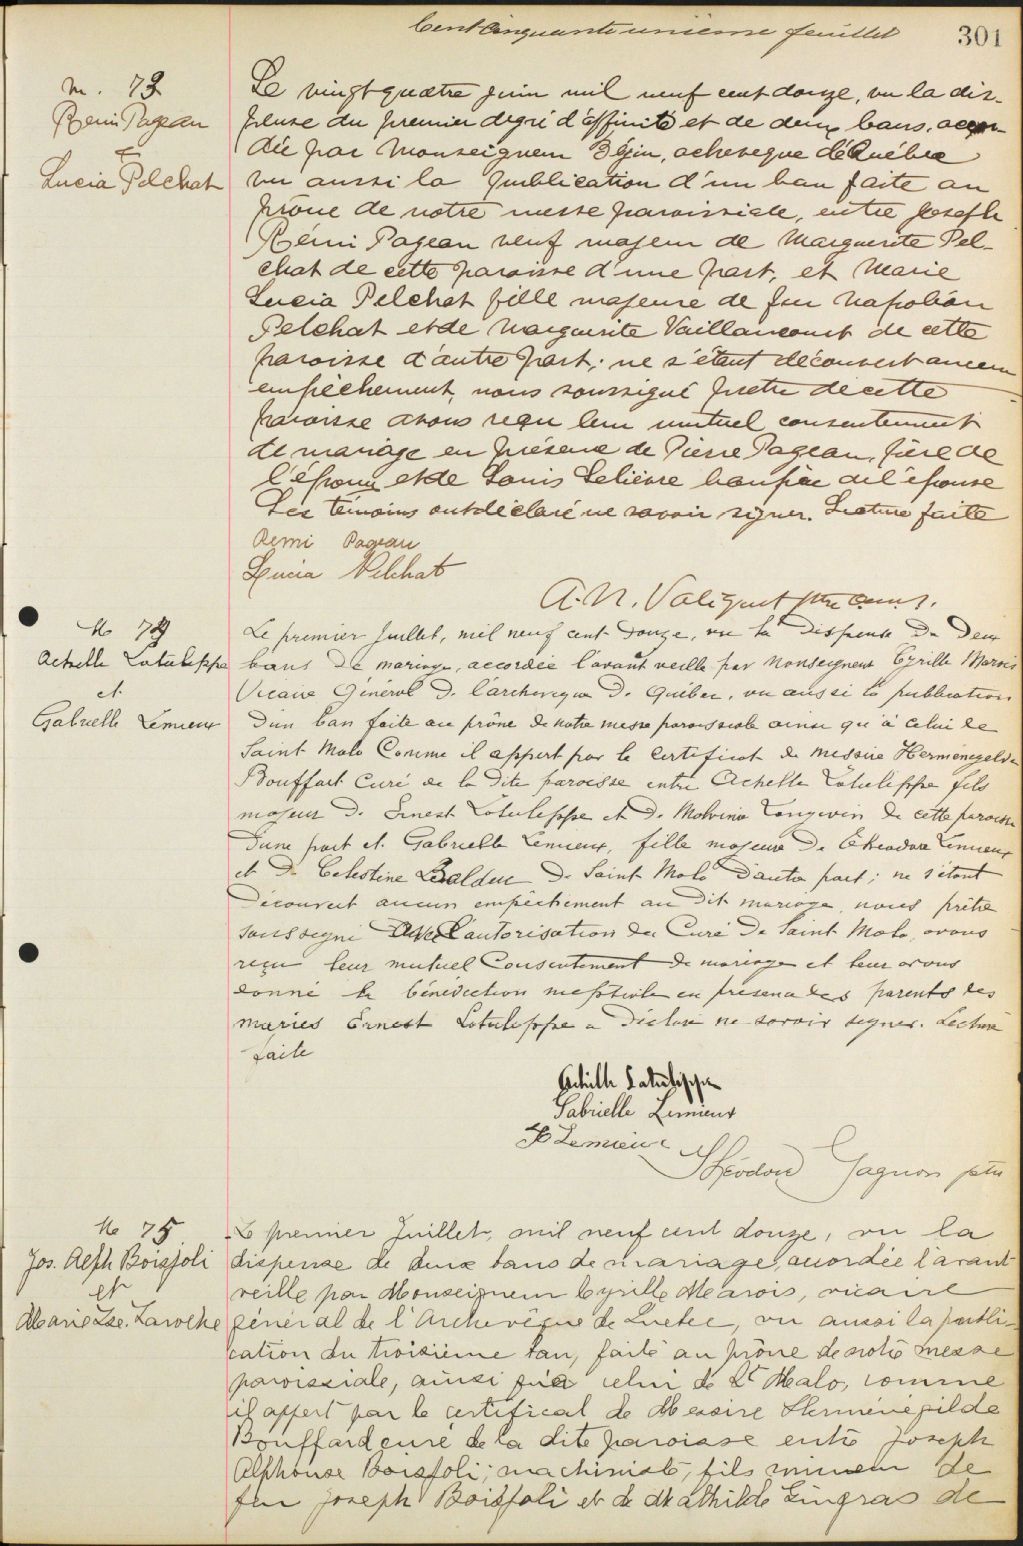 Cent Cinquante unième feuillet
301
m. 73
Remi Pageau
&
Lucia Pelchat
Le vingt-quatre juin mil neuf cent douze, vu la dis-
pense du premier degré d'affinité et de deux bans, accor-
dée par Monseigneur Bégin, acheveque de Québec
vu aussi la publication d'un ban faite au
prône de notre messe paroissiale, entre Joseph
Rémi Pageau veuf majeur de Marguerite Pel-
chat de cette paroisse d'une part, et Marie
Lucia Pelchat fille majeure de feu Napoléon
Pelchat et de Marguerite Vaillancourt de cette
paroisse d'autre part; ne s'étant découvert aucun
empêchement, nous soussigné prêtre de cette
paroisse avons reçu leur mutuel consentement
de mariage en présence de Pierre Pageau, père de
l'époux et de Louis Lelièvre beaupère de l'épouse
Les témoins ont déclaré ne savoir signer. Lecture faite
Remi Pageau
Lucia Pelchat
A. N. Valiquet ptre cur.
M 74
Achille Latulippe
et
Gabrielle Lemieux
Le premier Juillet, mil neuf cent douze, vu la dispense de deux
bans de mariage, accordée l'avant veille par Monseigneur Cyrille Marois
Vicaire Général de l'archeveque de Québec, vu aussi la publication
d'un ban faite au prône de notre messe paroissiale ainsi qu'à celui de
Saint Malo Comme il appert par le certificat de messire Herménégilde
Bouffart Curé de la dite paroisse entre Achille Latulippe fils
majeur de Ernest Latulippe et de Malvina Langevin de cette paroisse
d'une part et Gabrielle Lemieux, fille majeure de Théodore Lemieux
et de Celestine Bolduc de Saint Malo d'autre part; ne s'étant
découvert aucun empêchement au dit mariage, nous prêtre
soussigné avec l'autorisation du Curé de Saint Malo, avons
reçu leur mutuel Consentement de mariage et leur avons
donné la bénédiction nuptiale en présence des parents des
mariés Ernest Latulippe a déclaré ne savoir signer. Lecture
faite
Achille Latulippe
Gabrielle Lemieux
Lemieux
Théodore Gagnon ptre
M 75
Jos. Alph Boisjoli
et
Marie Lse. Laroche
Le premier Juillet, mil neuf cent douze, vu la
dispense de deux bans de mariage, accordée l'avant
veille par Monseigneur Cyrille Marois, vicaire
général de l'Archevêque de Québec, vu aussi la publi-
cation du troisième ban, faite au prône de notre messe
paroissiale, ainsi qu'à celui de St Malo, comme
il appert par le certificat de Messire Herménégilde
Bouffard curé de la dite paroisse entre Joseph
Alphonse Boisjoli, machiniste, fils mineur de
feu Joseph Boisjoli et de Mathilde Gingras de